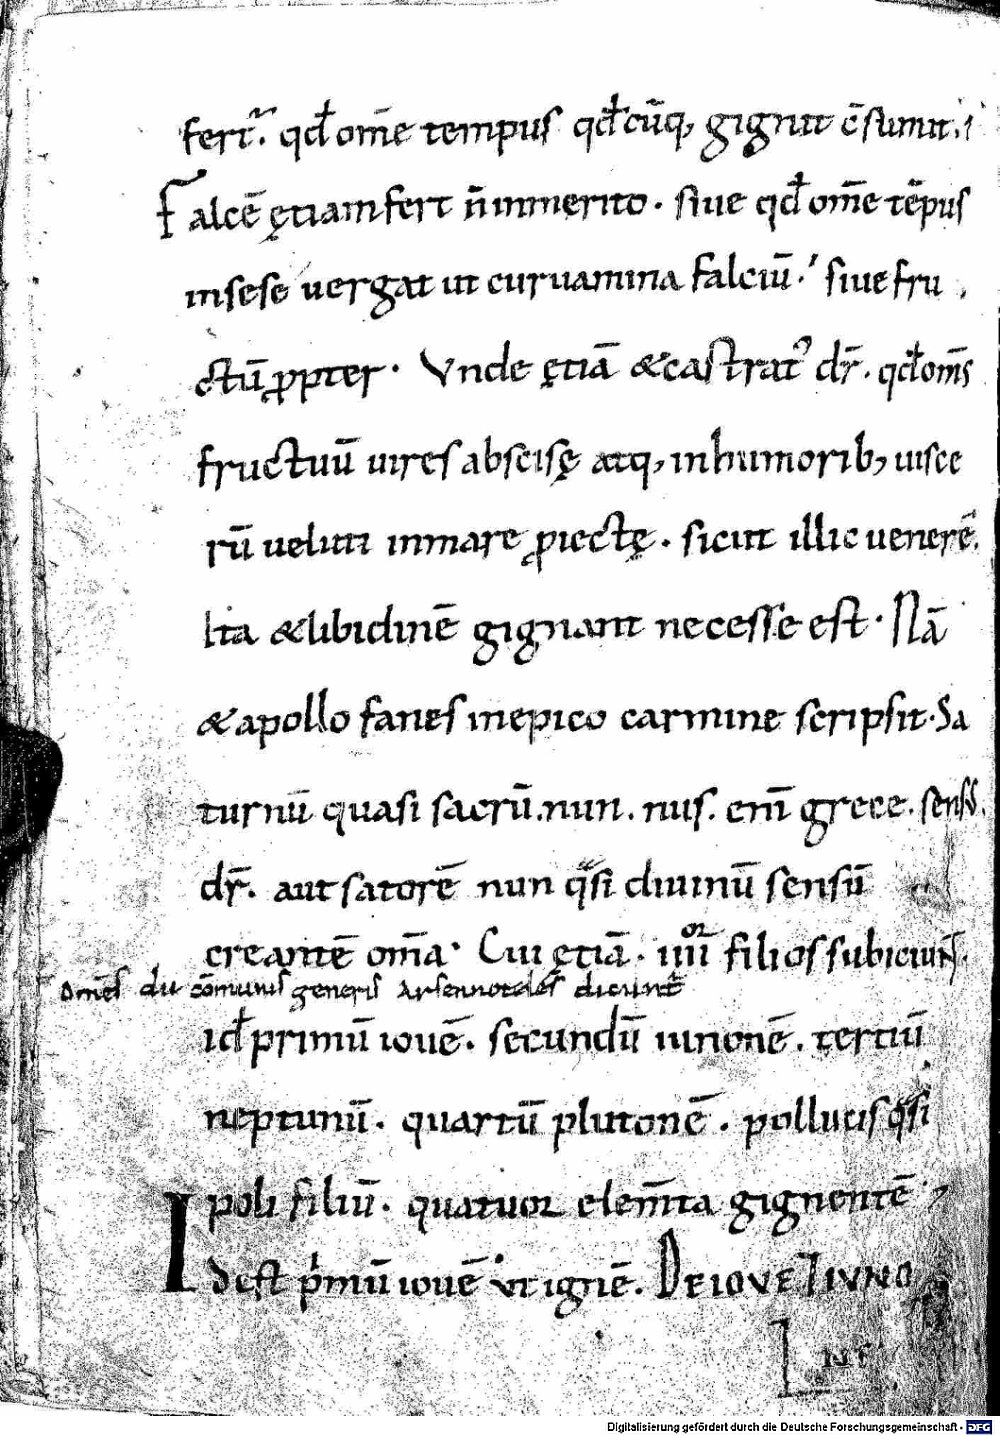 fert᷑. qđ om̄e tempus qđcūq; gignit c̄sumit. i
Falcē ętiam fert n̄ inmerito. siue qđ om̄e tēpus
in sese uergat ut curuamina falciū. siue fru
ctū ꝓpter. Vnde ętiā & castrat᾽ dr̄. qđ om̄s
fructuū uires abscisę atq; in humorib; uisce
rū uelut in mare ꝓiectę. sicut illic uenerē.
ita & libidinē gignant necesse est. Nā
& apollo fanes in epico carmine scripsit. Sa
turnū quasi sacrū. nun. nus. enī grece. sensus.
dr̄. aut satorē nun q̄si diuinū sensū
creantē om̄a. Cui ętiā. iiii^or filios subiciunt.
Om̄es dii cōmunis generis Arsennoteles dicunt᷑
id̄ primū iouē. secundū iunonē. tertiū
neptunū. quartū plutonē. pollucis q̄si
poli filiū. quatuor elem̄ta gignentē
Idest p'mū iouē ut ignē. DE IOVE ⁊ IVNO
Digitalisierung gefördert durch die Deutsche Forschungsgemeinschaft - DFG